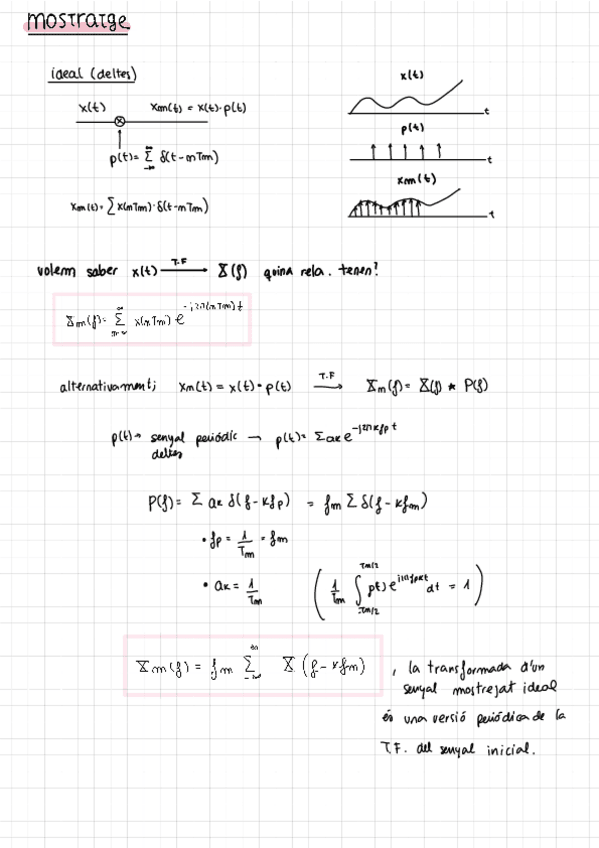 mostratge
ideal (deltes)
x(t)
xm(t) = x(t)·p(t)
p(t) = ∞ Σ -∞ δ(t-mTm)
xm(t) = Σ x(mTm)·δ(t-mTm)
x(t)
t
p(t)
t
xm(t)
t
volem saber x(t) T.F → X(f) quina rela. tenen?
Xm(f) = ∞ Σ x(mTm) e^-j2π(mTm)t
alternativament; xm(t) = x(t) · p(t) T.F → Xm(f) = X(f) * P(f)
p(t) → senyal periòdic → p(t) = Σ ak e^-j2πkfp t
deltes
P(f) = Σ ak δ(f-kfp) = fm Σ δ(f-kfm)
• fp = 1/Tm = fm
• ak = 1/Tm ( 1/Tm ∫ Tm/2 -Tm/2 p(t) e^j2πfpkt dt = 1 )
Xm(f) = fm ∞ Σ -∞ X (f-kfm) , la transformada d'un
senyal mostrejat ideal
és una versió periòdica de la
T.F. del senyal inicial.